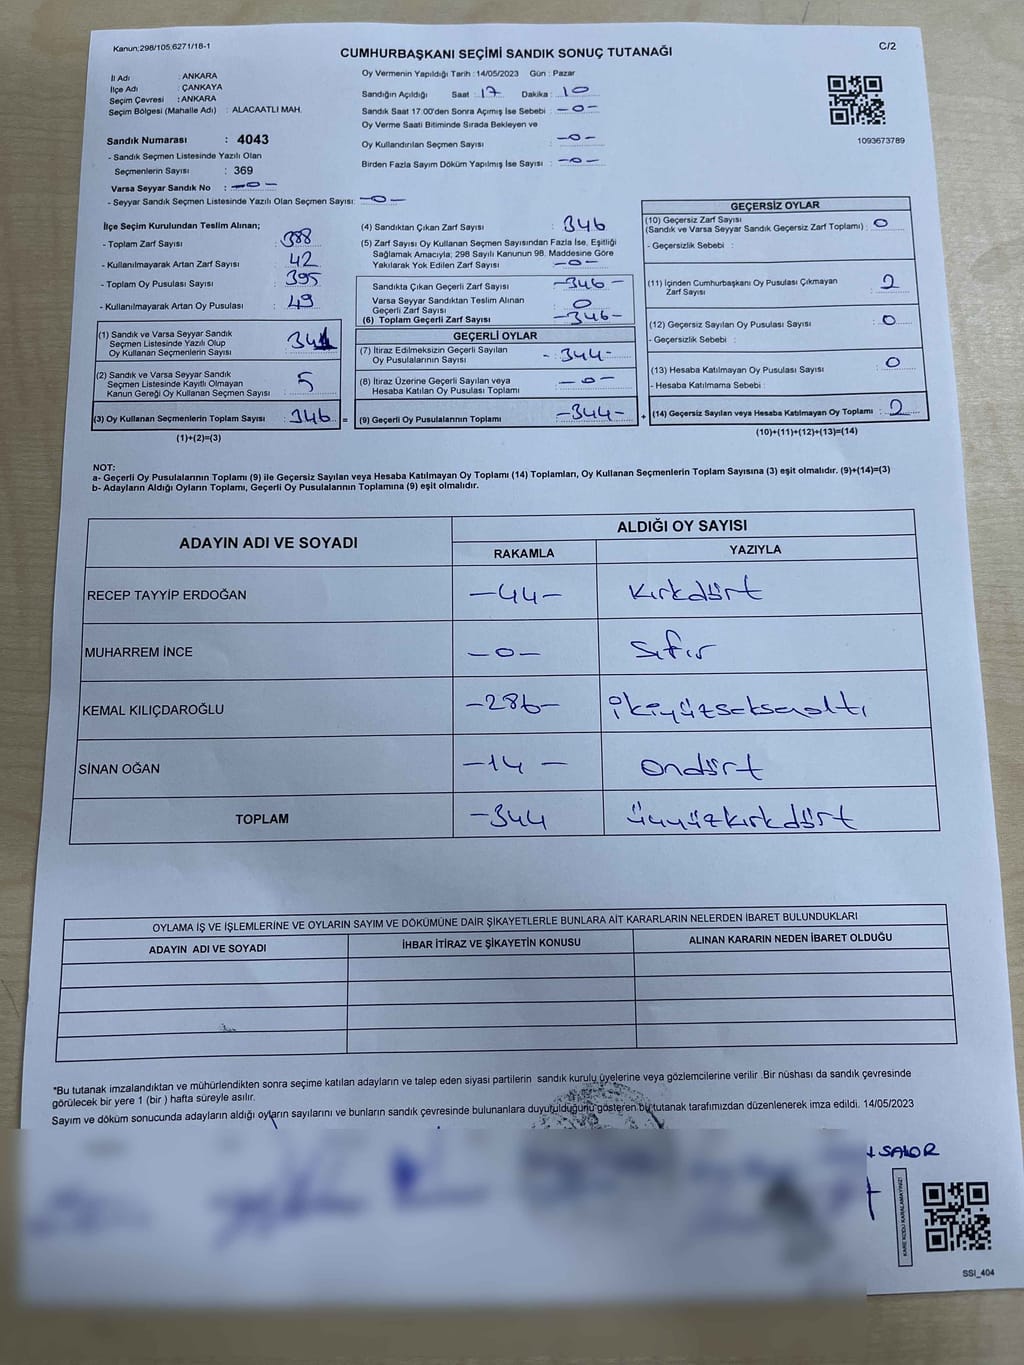 Kanun;298/105,6271/18-1
CUMHURBAŞKANI SEÇİMİ SANDIK SONUÇ TUTANAĞI
C/2
İl Adı : ANKARA
İlçe Adı : ÇANKAYA
Seçim Çevresi : ANKARA
Seçim Bölgesi (Mahalle Adı) : ALACAATLI MAH.
Sandık Numarası : 4043
- Sandık Seçmen Listesinde Yazılı Olan
Seçmenlerin Sayısı : 369
Varsa Seyyar Sandık No : -0-
- Seyyar Sandık Seçmen Listesinde Yazılı Olan Seçmen Sayısı: -0-
Oy Vermenin Yapıldığı Tarih : 14/05/2023 Gün : Pazar
Sandığın Açıldığı Saat : 17 Dakika : 10
Sandık Saat 17:00'den Sonra Açımış İse Sebebi : -0-
Oy Verme Saati Bitiminde Sırada Bekleyen ve
Oy Kullandırılan Seçmen Sayısı : -0-
Birden Fazla Sayım Döküm Yapılmış İse Sayısı : -0-
1093673789
İlçe Seçim Kurulundan Teslim Alınan;
- Toplam Zarf Sayısı : 388
- Kullanılmayarak Artan Zarf Sayısı : 42
- Toplam Oy Pusulası Sayısı : 395
- Kullanılmayarak Artan Oy Pusulası : 49
(1) Sandık ve Varsa Seyyar Sandık
Seçmen Listesinde Yazılı Olup
Oy Kullanan Seçmenlerin Sayısı : 341
(2) Sandık ve Varsa Seyyar Sandık
Seçmen Listesinde Kayıtlı Olmayan
Kanun Gereği Oy Kullanan Seçmen Sayısı : 5
(3) Oy Kullanan Seçmenlerin Toplam Sayısı : 346 =
(1)+(2)=(3)
(4) Sandıktan Çıkan Zarf Sayısı : 346
(5) Zarf Sayısı Oy Kullanan Seçmen Sayısından Fazla İse, Eşitliği
Sağlamak Amacıyla; 298 Sayılı Kanunun 98. Maddesine Göre
Yakılarak Yok Edilen Zarf Sayısı : -0-
Sandıkta Çıkan Geçerli Zarf Sayısı : -346-
Varsa Seyyar Sandıktan Teslim Alınan
Geçerli Zarf Sayısı : 0
(6) Toplam Geçerli Zarf Sayısı : -346-
GEÇERLİ OYLAR
(7) İtiraz Edilmeksizin Geçerli Sayılan
Oy Pusulalarının Sayısı : -344-
(8) İtiraz Üzerine Geçerli Sayılan veya
Hesaba Katılan Oy Pusulası Toplamı : -0-
(9) Geçerli Oy Pusulalarının Toplamı : -344- +
GEÇERSİZ OYLAR
(10) Geçersiz Zarf Sayısı
(Sandık ve Varsa Seyyar Sandık Geçersiz Zarf Toplamı) : 0
- Geçersizlik Sebebi :
(11) İçinden Cumhurbaşkanı Oy Pusulası Çıkmayan
Zarf Sayısı : 2
(12) Geçersiz Sayılan Oy Pusulası Sayısı : 0
- Geçersizlik Sebebi :
(13) Hesaba Katılmayan Oy Pusulası Sayısı : 0
- Hesaba Katılmama Sebebi :
(14) Geçersiz Sayılan veya Hesaba Katılmayan Oy Toplamı : 2
(10)+(11)+(12)+(13)=(14)
NOT:
a- Geçerli Oy Pusulalarının Toplamı (9) ile Geçersiz Sayılan veya Hesaba Katılmayan Oy Toplamı (14) Toplamları, Oy Kullanan Seçmenlerin Toplam Sayısına (3) eşit olmalıdır. (9)+(14)=(3)
b- Adayların Aldığı Oyların Toplamı, Geçerli Oy Pusulalarının Toplamına (9) eşit olmalıdır.
ADAYIN ADI VE SOYADI
ALDIĞI OY SAYISI
RAKAMLA YAZIYLA
RECEP TAYYİP ERDOĞAN -44- Kırkdört
MUHARREM İNCE -0- Sıfır
KEMAL KILIÇDAROĞLU -286- ikiyüzseksenaltı
SİNAN OĞAN -14- Ondört
TOPLAM -344 üçyüzkırkdört
OYLAMA İŞ VE İŞLEMLERİNE VE OYLARIN SAYIM VE DÖKÜMÜNE DAİR ŞİKAYETLERLE BUNLARA AİT KARARLARIN NELERDEN İBARET BULUNDUKLARI
ADAYIN ADI VE SOYADI İHBAR İTİRAZ VE ŞİKAYETİN KONUSU ALINAN KARARIN NEDEN İBARET OLDUĞU
*Bu tutanak imzalandıktan ve mühürlendikten sonra seçime katılan adayların ve talep eden siyasi partilerin sandık kurulu üyelerine veya gözlemcilerine verilir .Bir nüshası da sandık çevresinde
görülecek bir yere 1 (bir ) hafta süreyle asılır.
Sayım ve döküm sonucunda adayların aldığı oyların sayılarını ve bunların sandık çevresinde bulunanlara duyurulduğunu gösteren bu tutanak tarafımızdan düzenlenerek imza edildi. 14/05/2023
KARE KODU KARALAMAYINIZ!
SSI_404